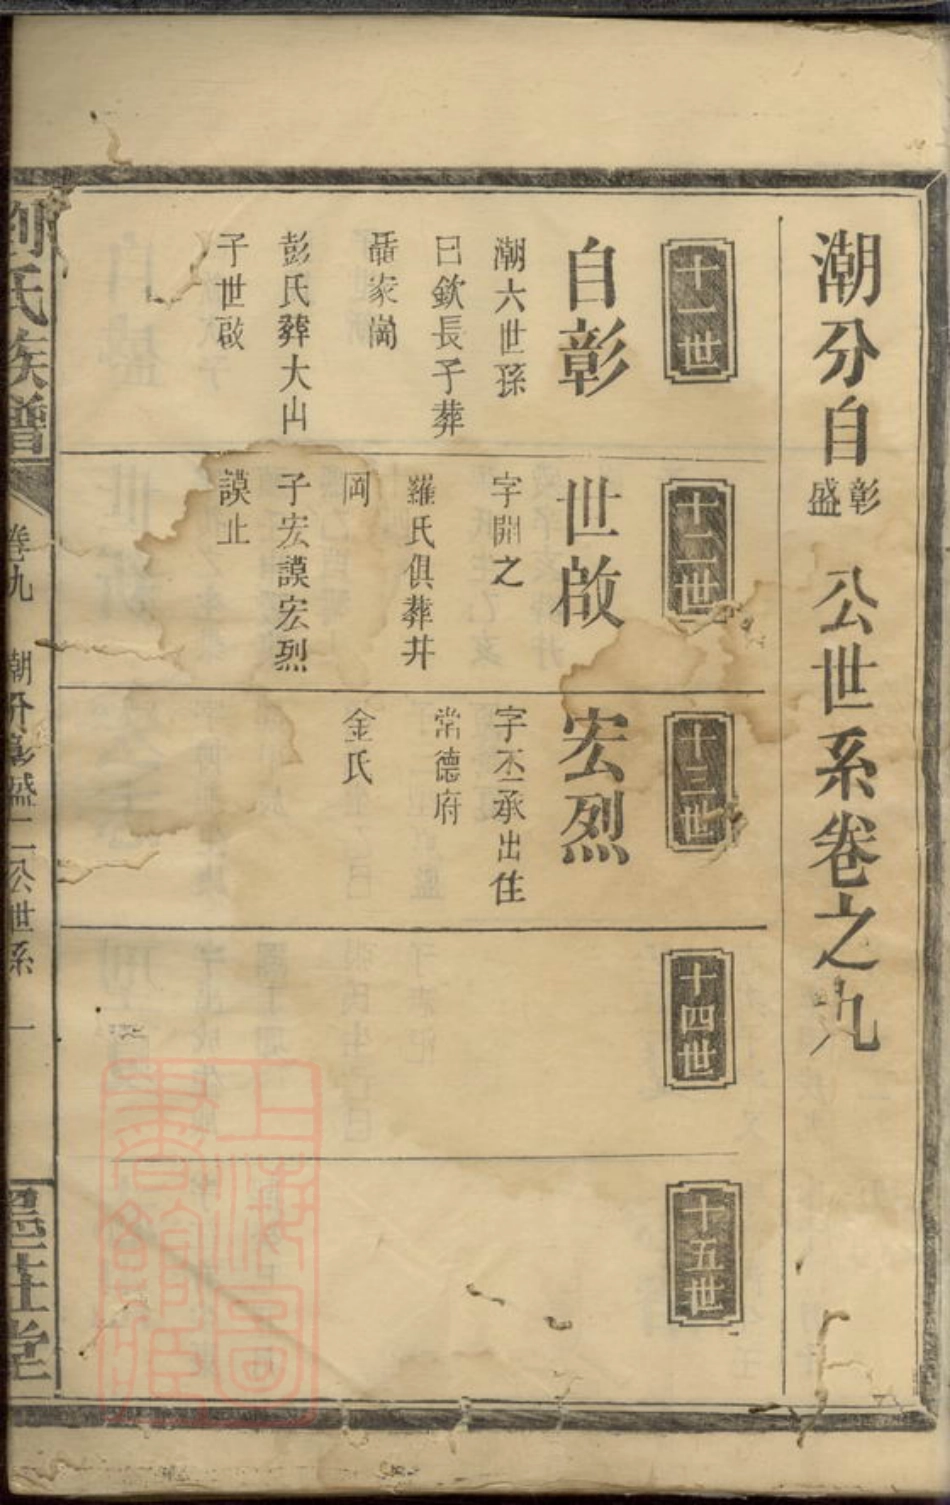 潮分自彰盛公世系卷之九
十一世
自彰
潮六世孫
曰欽長子葬
聶家崗
彭氏葬大山
子世啟
十二世
世啟
字開之
羅氏俱葬井
岡
子宏謨宏烈
謨止
十三世
宏烈
字丕承出住
常德府
金氏
十四世
十五世
劉氏族譜
卷九
潮分彰盛二公世系
一
上海圖書館藏